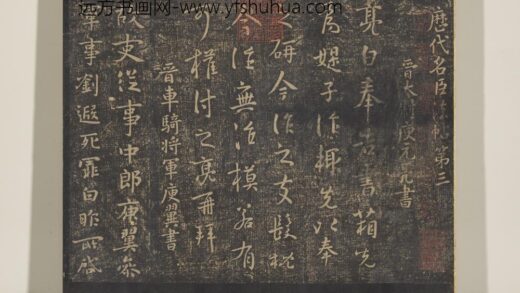 远方书画网-www.yfshuhua.com
歷代名臣法帖第三
晉太尉庾元亮書
亮白奉告書箱先
為媤子作極先以奉
之研今作之支髮枇
今作無治模若有
可權付之亮再拜
晉車騎將軍庾翼書
故吏從事中郎庾翼參
軍事劉遐死罪白昨所啓